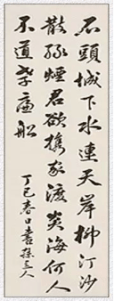 石頭城下水連天岸柳汀沙
散綠煙君欲攜家渡炎海何人
不道孝廉船
丁巳春日書孫文人